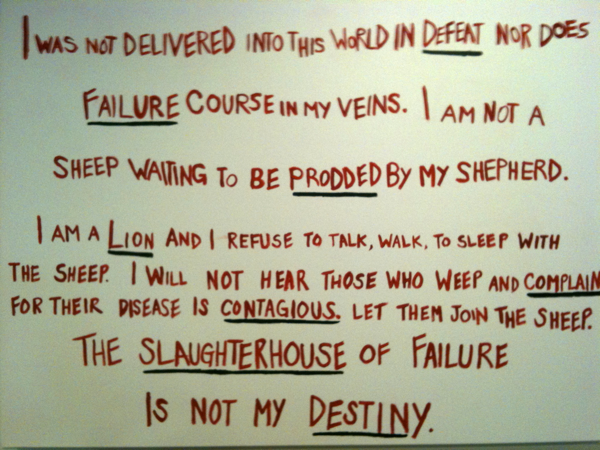 I WAS NOT DELIVERED INTO THIS WORLD IN DEFEAT NOR DOES
FAILURE COURSE IN MY VEINS. I AM NOT A
SHEEP WAITING TO BE PRODDED BY MY SHEPHERD.
I AM A LION AND I REFUSE TO TALK, WALK, TO SLEEP WITH
THE SHEEP. I WILL NOT HEAR THOSE WHO WEEP AND COMPLAIN
FOR THEIR DISEASE IS CONTAGIOUS. LET THEM JOIN THE SHEEP.
THE SLAUGHTERHOUSE OF FAILURE
IS NOT MY DESTINY.